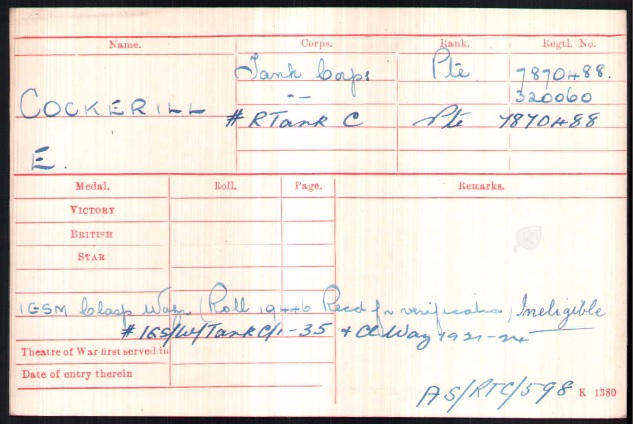 Name. Corps. Rank. Regtl. No.
COCKERILL Tank Corps Pte 7870488.
-"- 320060
E. # R Tank C Pte 7870488
Medal. Roll. Page. Remarks.
VICTORY
BRITISH
STAR
IGSM Clasp Wazr (Roll 19446 Recd for verification) Ineligible
# IGS/W/Tank C/1-35 + Cl Waz 1921-24
Theatre of War first served in
Date of entry therein
AS/RTC/598 K 1380